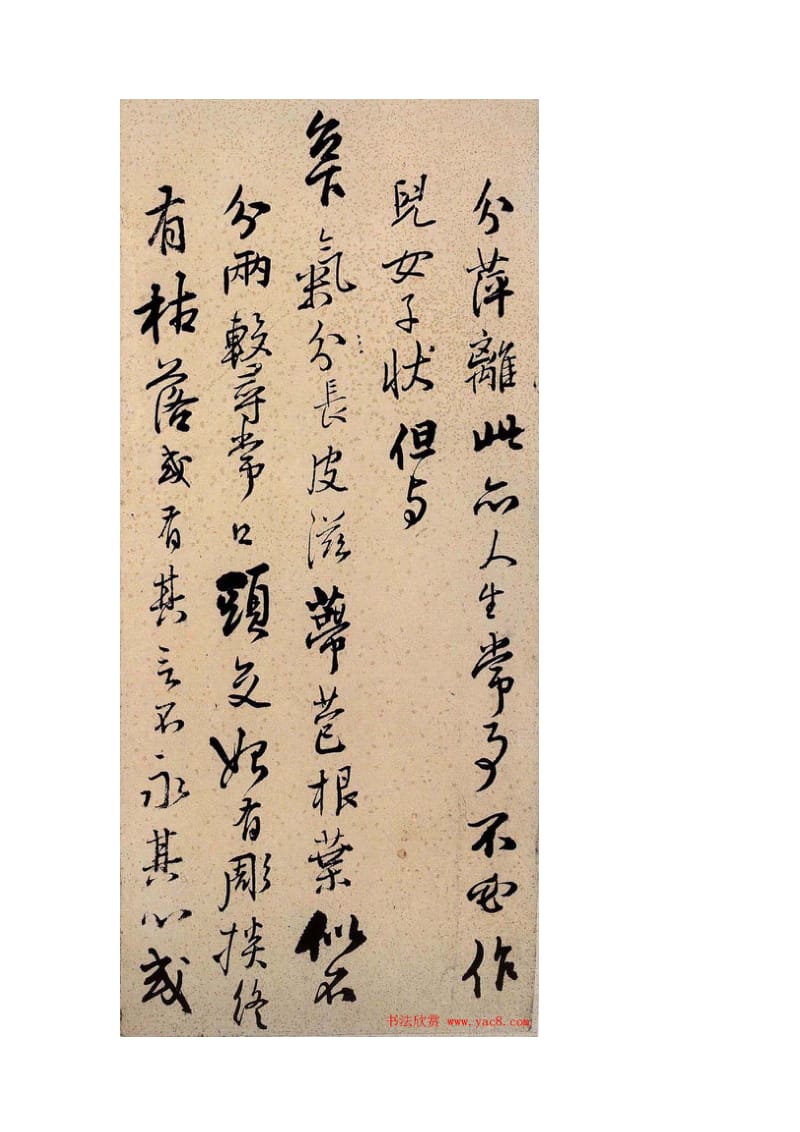 分萍離此亦人生常事不必作
兒女子狀但与
足下氣分長皮滋蕚苞根葉似不
分兩較尋常口頭交好有彫掞終
有枯落或有其言不永其心或
书法欣赏 www.yac8.com